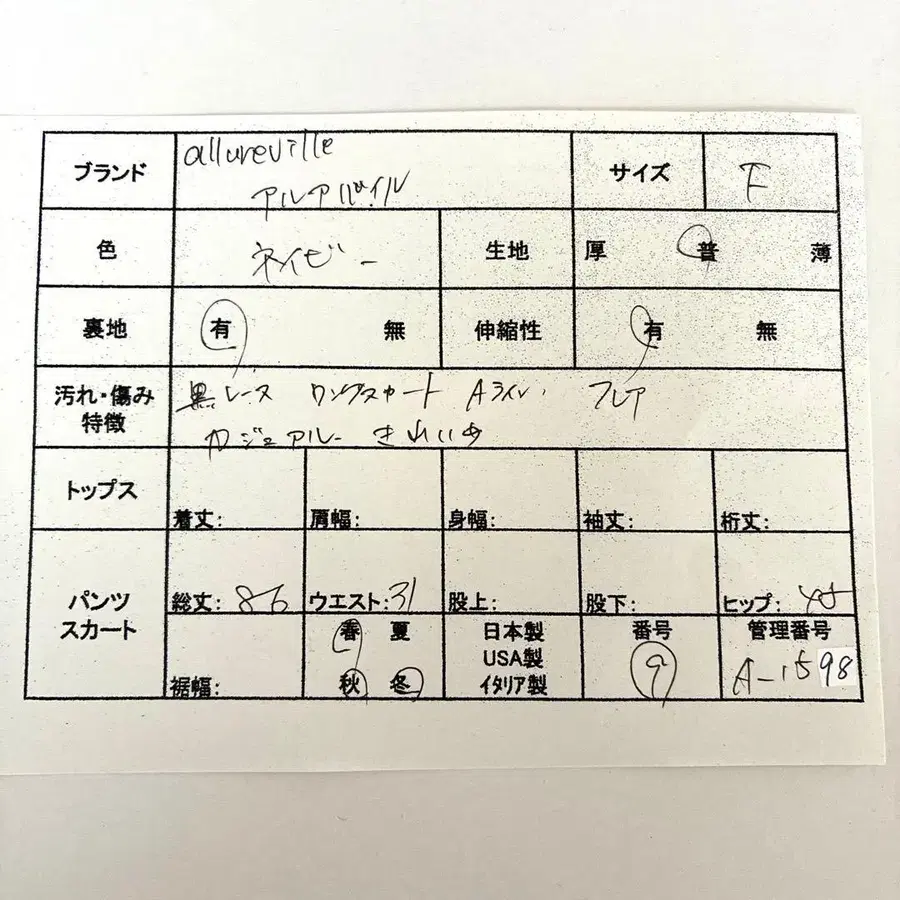 ブランド allureville サイズ F
アルアバイル
色 ネイビー 生地 厚 普 薄
裏地 有 無 伸縮性 有 無
汚れ・傷み 黒レース ロングスカート Aライン フレア
特徴 カジュアル きれいめ
トップス 着丈: 肩幅: 身幅: 袖丈: 裄丈:
パンツ スカート 総丈: 86 ウエスト: 31 股上: 股下: ヒップ: 45
裾幅: 春 夏 日本製 番号 管理番号
USA製
秋 冬 イタリア製 9 A-1598